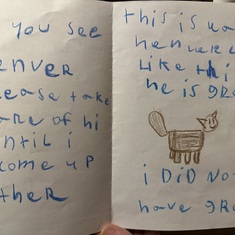 you see
ENVER
ease take
are of hi
ntil i
come up
tHER
this is
Like thi
he is gra
i DiD NO
have gra